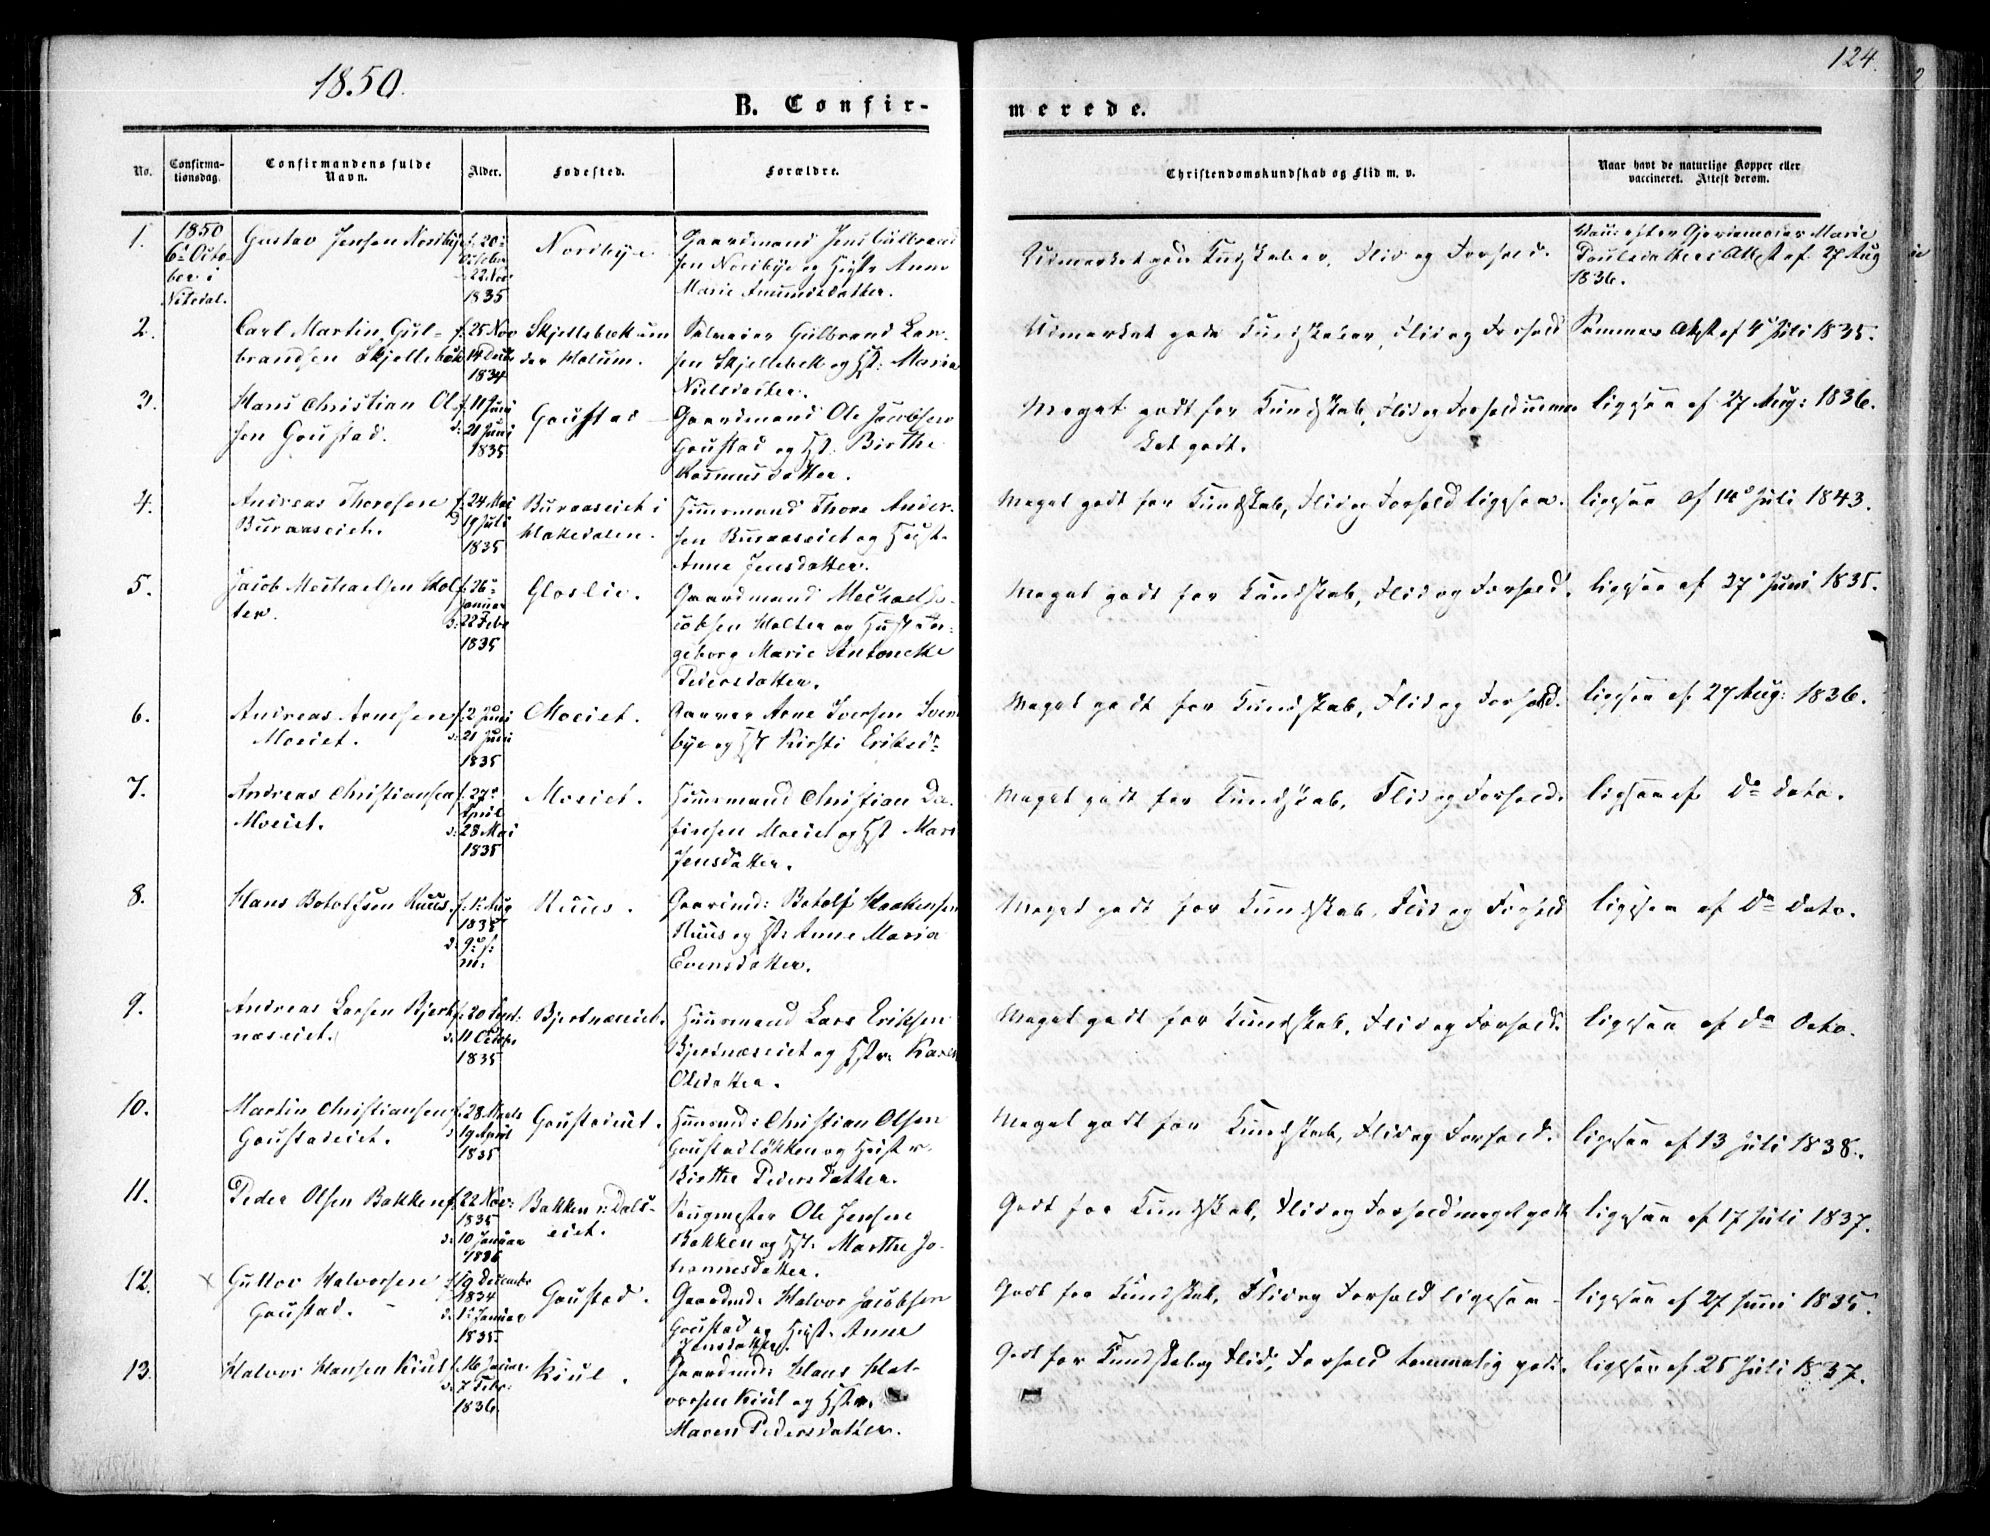 1850.
124.
B. Confir-
merede.
No.
Confirma-
tionsdag.
Confirmandens fulde
Navn.
Alder.
Fødested.
Forældre.
Christendomskundskab og Flid m. v.
Naar havt de naturlige Kopper eller
vaccineret. Attest derom.
1.
1850
6te Octo-
ber i
Nitedal.
Gustav Jensen Nordbye
f. 20de
October
22 Nov
1835
Nordbye.
Gaardmand Jens Gulbrand
sen Nordbye og Hustr Anne
Marie Amundsdatter.
Udmærket gode Kundskaber, Flid og Forhold.
Gjordemoder Marie
Poulsdatters Attest af 27 Aug
1836.
2.
Carl Martin Gul-
brandsen Skjellebek
f. 25 Nov
14 Decbr
1834
Skjellebæk un
der Holum.
Selveier Gulbrand Lar-
sen Skjellebek og Hst: Maria
Nielsdatter.
Udmærket gode Kundskaber, Flid og Forhold
Sammes Attest af 4de Juli 1835.
3.
Hans Christian Ol-
sen Goustad.
f. 11 Juni
d: 21 Juni
1835
Goustad
Gaardmand Ole Jacobsen
Goustad og Hst. Birthe
Rasmusdatter.
Meget godt for Kundskab, Flid og Forhold udmær
ket godt.
ligesaa af 27 Aug: 1836.
4.
Andreas Thoresen
Buraaseiet.
f. 24 Mai
d 19 Juli
1835
Buraaseiet i
Hakedalen.
Huusmand Thore Ander-
sen Buraaseiet og Hust.
Anne Jensdatter.
Meget godt for Kundskab, Flid og Forhold ligesaa.
ligesaa af 14de Juli 1843.
5.
Jacob Mechaelsen Hol
ter.
f. 26de
Januar
d: 22 Febr
1835
Gloslie.
Gaardmand Mechael Ja-
cobsen Holter og Hustr In-
geborg Marie Antonette
Pedersdatter.
Meget godt for Kundskab, Flid og Forhold.
ligesaa af 27de Juni 1835.
6.
Andreas Arnesen
Moeiet.
f. 2 Juni
d: 21 Juni
1835
Moeiet.
Arne Iversen Sven
bye og Hst Kirsti Eriksdr
Meget godt for Kundskab, Flid og Forhold.
ligesaa af 27 Aug: 1836.
7.
Andreas Christiansen
Moeiet.
f. 27de
April
d: 28 Mai
1835
Moeiet.
Huusmand Christian Da-
Moeiet og Hst Mari
Jensdatter.
Meget godt for Kundskab, Flid og Forhold.
ligesaa af Do Dato.
8.
Hans Botolfsen Ruus.
f. 1te Aug
1835
d: 9de s:
m.
Ruus.
Gaardmd: Botolf Haakensen
Ruus og Hst: Anne Maria
Evensdatter.
Meget godt for Kundskab, Flid og Forhold
ligesaa af Do Dato.
9.
Andreas Larsen Bjert
næseiet.
f. 20 Sept:
d: 11 Octbr
1835
Bjertnæseiet.
Huusmand Lars Eriksen
Bjertnæseiet og Hstr: Karen
Olesdatter.
Meget godt for Kundskab, Flid og Forhold.
ligesaa af Do Dato.
10.
Martin Christiansen
Goustadeiet.
f. 28 Marts
d 19 April
1835
Goustadeiet.
Huusmd: Christian Olsen
Goustadløkken og Hustr.
Birthe Pedersdatter.
Meget godt for Kundskab, Flid og Forhold.
ligesaa af 13 Juli 1838.
11.
Peder Olsen Bakken
f. 22 Nov:
1835
d: 10 Januar
1836
Bakken u: Dals-
eiet.
Saugmester Ole Jensen
Bakken og Hst: Marthe Jo-
hannesdatter.
Godt for Kundskab, Flid og Forhold meget godt
ligesaa af 17 Juli 1837.
12.
x
Guttor Halvorsen
Goustad.
f 19 December
1834
d: 1te Januar
1835
Goustad.
Gaardmd: Halvor Jacobsen
Goustad og Hust: Anne
Jensdatter.
Godt for Kundskab, Flid og Forhold ligesaa
ligesaa af 27 Juni 1835.
13.
Halvor Hansen Kiul
f. 16 Januar
d: 7 Febr:
1836.
Kiul.
Gaardmd: Hans Hal-
vorsen Kiul og Hstr.
Maren Pedersdatter.
Godt for Kundskab og Flid, Forhold temmelig godt.
ligesaa af 25 Juli 1837.